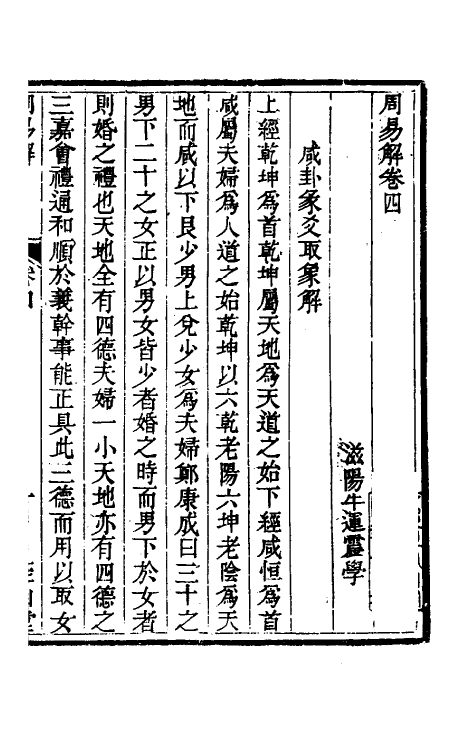 周易解卷四
滋陽牛運震學
咸卦彖爻取象解
上經乾坤為首乾坤屬天地為天道之始下經咸恒為首
咸屬夫婦為人道之始乾坤以六乾老陽六坤老陰為天
地而咸以下艮少男上兌少女為夫婦鄭康成曰三十之
男下二十之女正以男女皆少者婚之時而男下於女者
則婚之禮也天地全有四德夫婦一小天地亦有四德之
三嘉會禮通和順於義幹事能正具此三德而用以取女